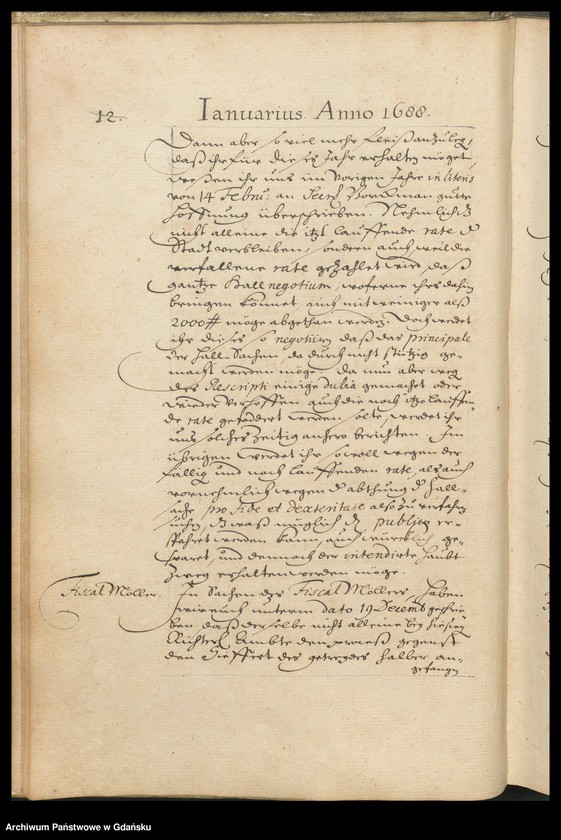 12.
Ianuarius Anno 1688.
Dann aber so viel mehr fleiß anzuleg,
daß ihr für dieses Jahr erhalten möget,
im vorigen Jahre in literis
von 14 Febru: an gutte
Hoffnung überschrieben. Nehmlich dz
nicht alleine die itzt lauffende rate d
Stadt verbleiben, sondern auch weil die
verfallene rate gezahlet wird, daß
gantze Hall negotium, woferne ihrs dahin
bringen könnet, auch mit weiniger alß
2000# möge abgethan werden. Doch werdet
ihr dieses so negotiiren daß das principale
der Hall-Sachen, da durch nicht stützig ge-
macht werden möge. da nun aber weg
des Rescripti einige dubia gemachet oder
wieder verhoffen auch die noch itzo lauffen-
de rate gefodert werden solte, werdet ihr
uns solches zeitig anhero berichten. Im
übrigen werdet ihr so woll wegen der
fällig und noch lauffenden rate, alß auch
vornehmlich wegen d abthung d Hall-
sache pro fide et dexteritate also zu verfahren
suchen, dz waß müglich dz publico er-
spahret werden kann, auch würcklich ge-
sparet und dennoch der intendirte Haubt
Zweg erhalten werden möge.
Fiscal Möller. In Sachen des Fiscal Möllers, haben
wir euch unterm dato 19 Decemb geschrie-
ben daß derselbe nicht alleine bey hiesig
Richterl. Ambte den proceß gegenst
den Sieffert des getreydes halber an-
gefangen